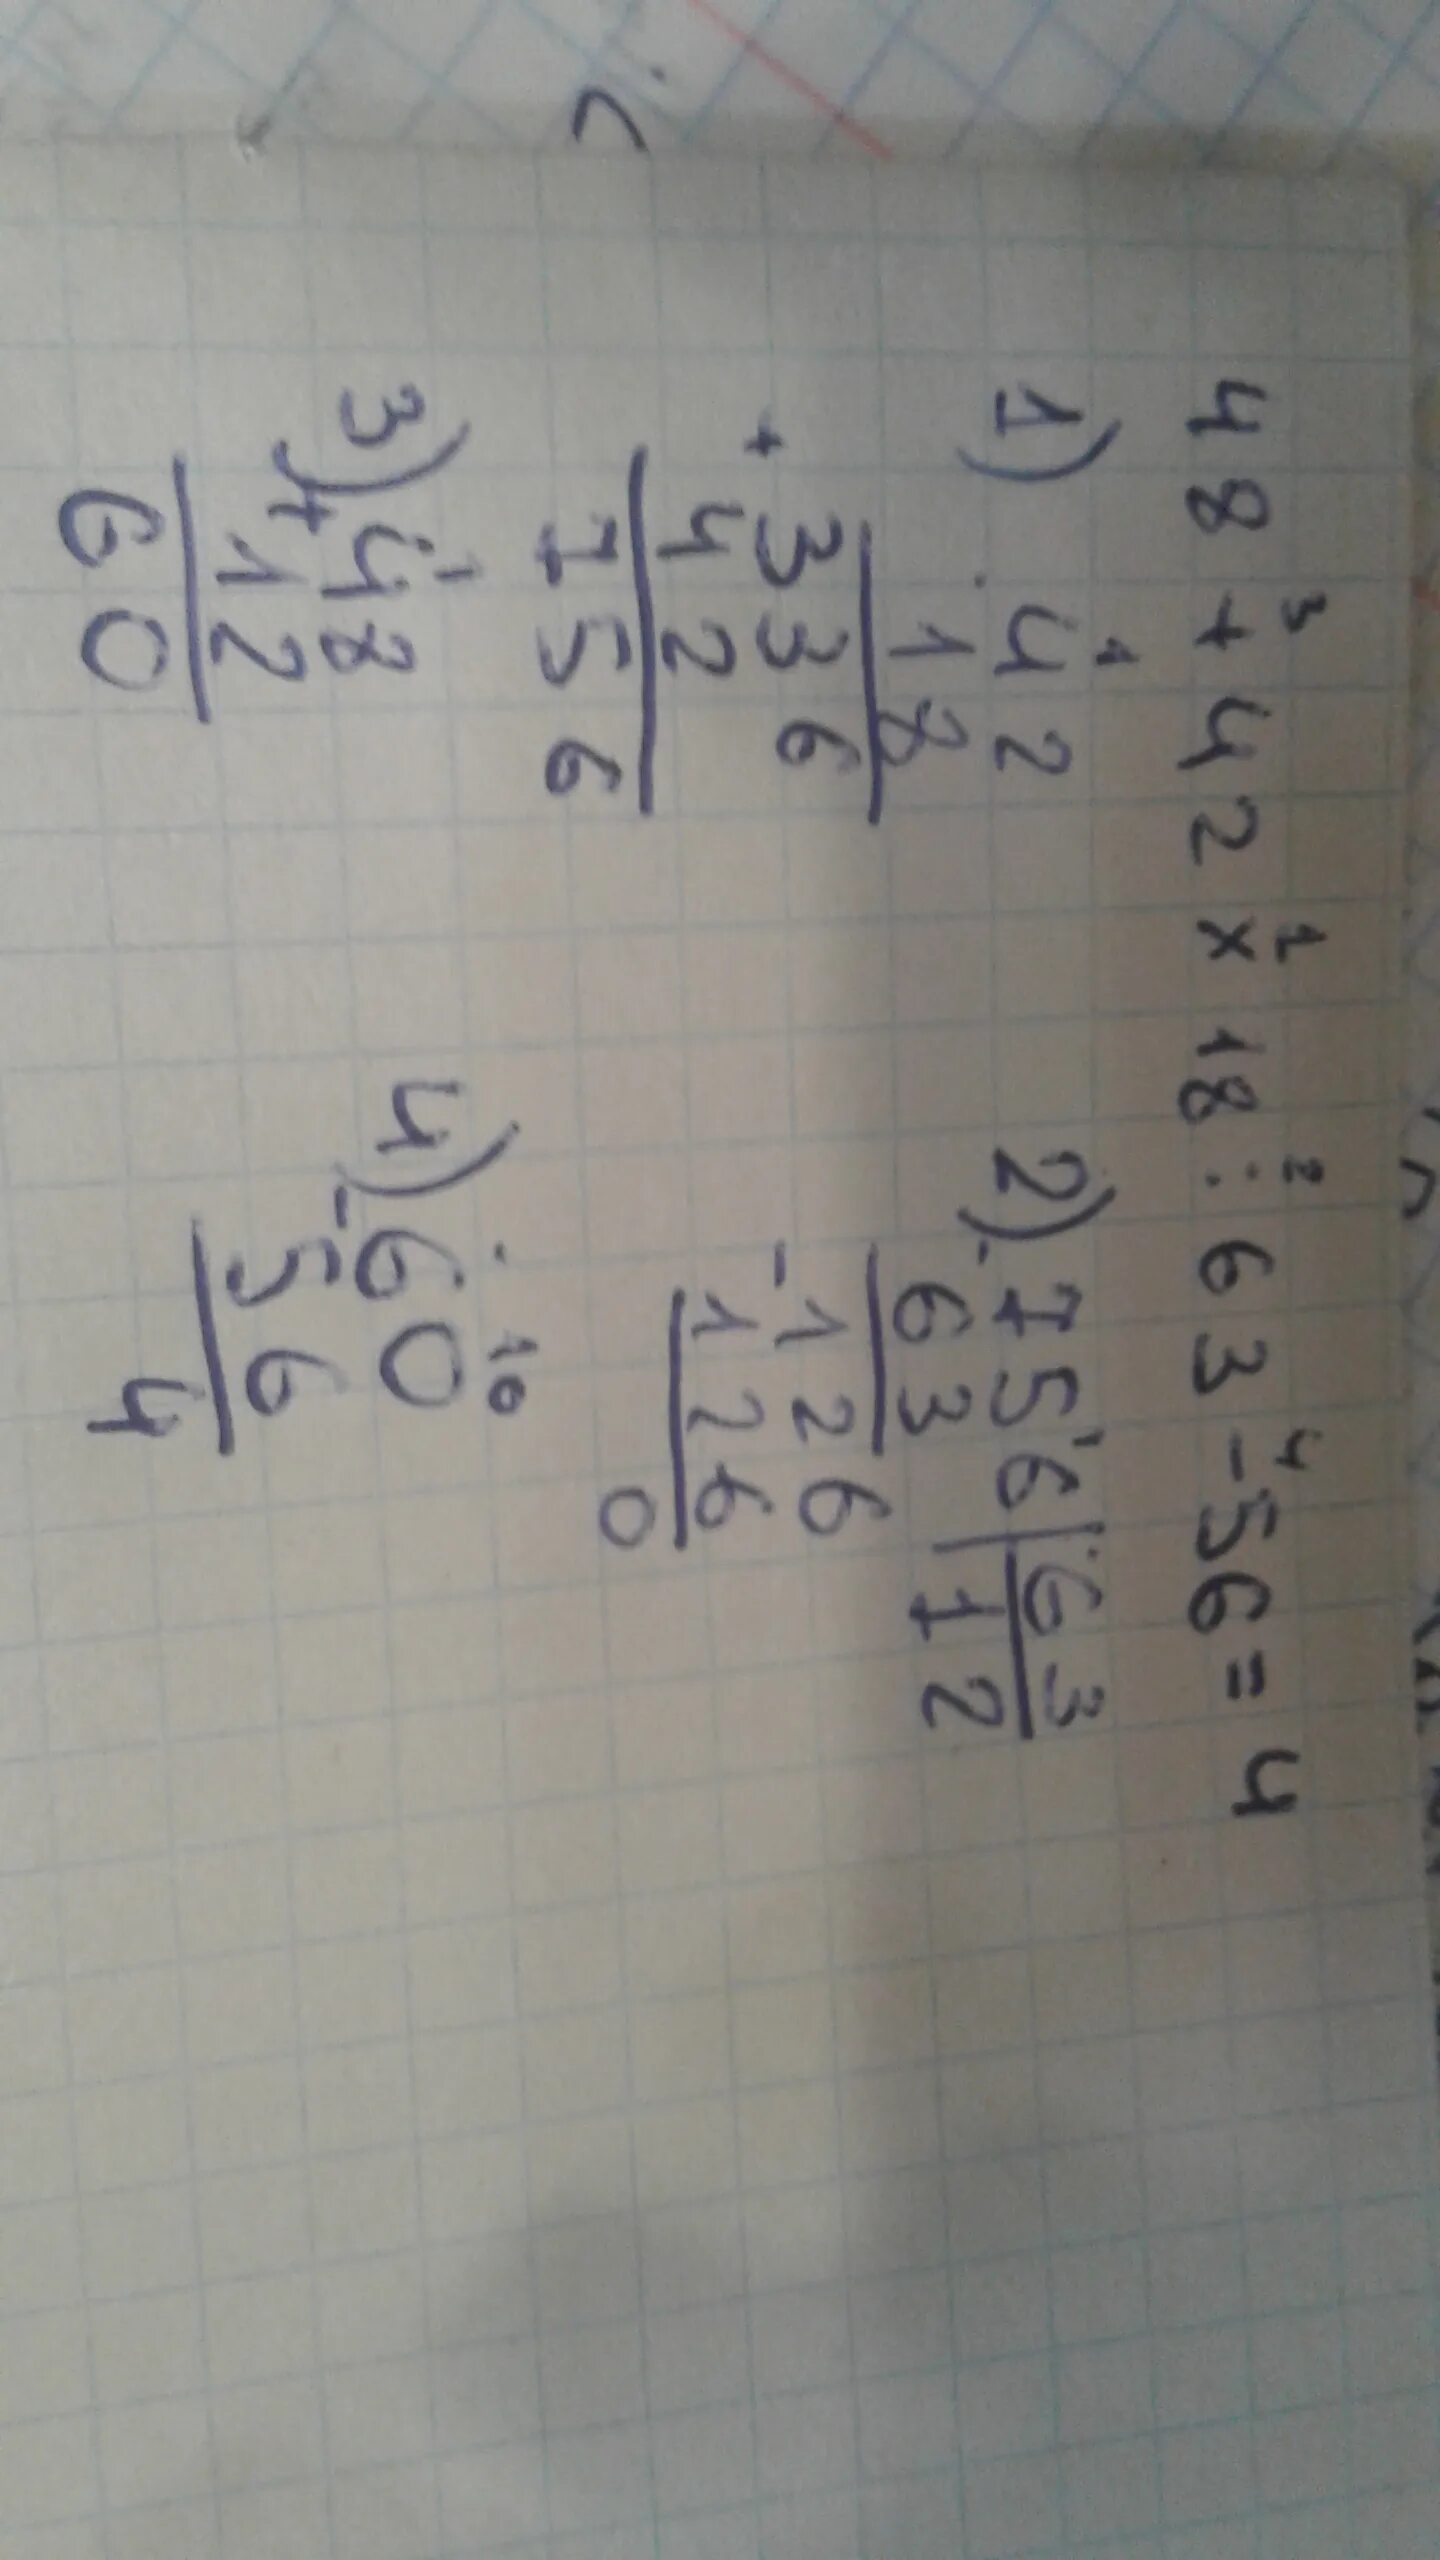 3 1 2 4
48 + 42 × 18 : 63 - 56 = 4
1) 42
18
336
+
42
756
2) - 756 | 63
63 12
- 126
126
0
3) 48
+ 12
60
4) - 60
56
4